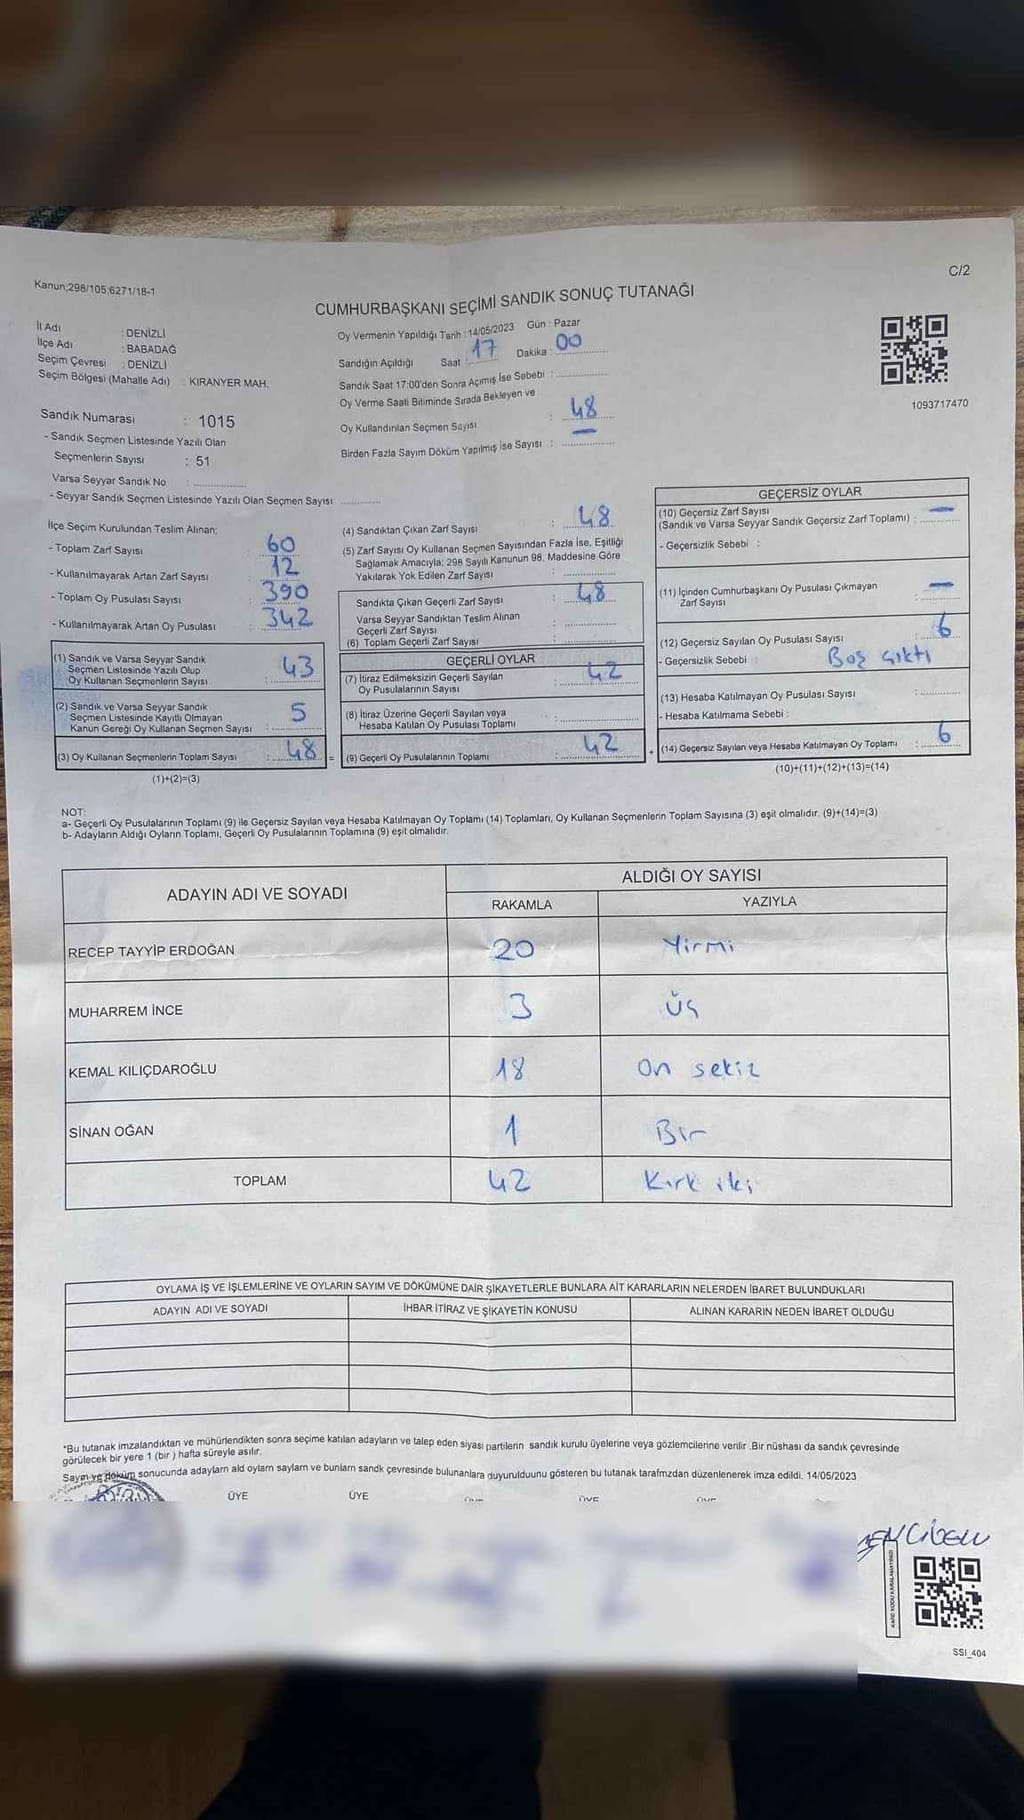 Kanun;298/105;6271/18-1
C/2
CUMHURBAŞKANI SEÇİMİ SANDIK SONUÇ TUTANAĞI
İl Adı : DENİZLİ
İlçe Adı : BABADAĞ
Seçim Çevresi : DENİZLİ
Seçim Bölgesi (Mahalle Adı) : KIRANYER MAH.
Sandık Numarası : 1015
- Sandık Seçmen Listesinde Yazılı Olan
Seçmenlerin Sayısı : 51
Varsa Seyyar Sandık No :
- Seyyar Sandık Seçmen Listesinde Yazılı Olan Seçmen Sayısı
Oy Vermenin Yapıldığı Tarih : 14/05/2023 Gün : Pazar
Sandığın Açıldığı Saat : 17 Dakika : 00
Sandık Saat 17:00'den Sonra Açımış İse Sebebi :
Oy Verme Saati Bitiminde Sırada Bekleyen ve
Oy Kullandırılan Seçmen Sayısı : 48
Birden Fazla Sayım Döküm Yapılmış ise Sayısı : —
1093717470
İlçe Seçim Kurulundan Teslim Alınan;
- Toplam Zarf Sayısı : 60
- Kullanılmayarak Artan Zarf Sayısı : 12
- Toplam Oy Pusulası Sayısı : 390
- Kullanılmayarak Artan Oy Pusulası : 342
(1) Sandık ve Varsa Seyyar Sandık
Seçmen Listesinde Yazılı Olup
Oy Kullanan Seçmenlerin Sayısı : 43
(2) Sandık ve Varsa Seyyar Sandık
Seçmen Listesinde Kayıtlı Olmayan
Kanun Gereği Oy Kullanan Seçmen Sayısı : 5
(3) Oy Kullanan Seçmenlerin Toplam Sayısı : 48 =
(1)+(2)=(3)
(4) Sandıktan Çıkan Zarf Sayısı : 48
(5) Zarf Sayısı Oy Kullanan Seçmen Sayısından Fazla İse, Eşitliği
Sağlamak Amacıyla; 298 Sayılı Kanunun 98. Maddesine Göre
Yakılarak Yok Edilen Zarf Sayısı :
Sandıkta Çıkan Geçerli Zarf Sayısı : 48
Varsa Seyyar Sandıktan Teslim Alınan
Geçerli Zarf Sayısı :
(6) Toplam Geçerli Zarf Sayısı :
GEÇERLİ OYLAR
(7) İtiraz Edilmeksizin Geçerli Sayılan
Oy Pusulalarının Sayısı : 42
(8) İtiraz Üzerine Geçerli Sayılan veya
Hesaba Katılan Oy Pusulası Toplamı :
(9) Geçerli Oy Pusulalarının Toplamı : 42 +
GEÇERSİZ OYLAR
(10) Geçersiz Zarf Sayısı
(Sandık ve Varsa Seyyar Sandık Geçersiz Zarf Toplamı) : —
- Geçersizlik Sebebi :
(11) İçinden Cumhurbaşkanı Oy Pusulası Çıkmayan
Zarf Sayısı : —
(12) Geçersiz Sayılan Oy Pusulası Sayısı : 6
- Geçersizlik Sebebi : Boş çıktı
(13) Hesaba Katılmayan Oy Pusulası Sayısı :
- Hesaba Katılmama Sebebi :
(14) Geçersiz Sayılan veya Hesaba Katılmayan Oy Toplamı : 6
(10)+(11)+(12)+(13)=(14)
NOT:
a- Geçerli Oy Pusulalarının Toplamı (9) ile Geçersiz Sayılan veya Hesaba Katılmayan Oy Toplamı (14) Toplamları, Oy Kullanan Seçmenlerin Toplam Sayısına (3) eşit olmalıdır. (9)+(14)=(3)
b- Adayların Aldığı Oyların Toplamı, Geçerli Oy Pusulalarının Toplamına (9) eşit olmalıdır.
ADAYIN ADI VE SOYADI ALDIĞI OY SAYISI
RAKAMLA YAZIYLA
RECEP TAYYİP ERDOĞAN 20 Yirmi
MUHARREM İNCE 3 Üç
KEMAL KILIÇDAROĞLU 18 On sekiz
SİNAN OĞAN 1 Bir
TOPLAM 42 Kırk iki
OYLAMA İŞ VE İŞLEMLERİNE VE OYLARIN SAYIM VE DÖKÜMÜNE DAİR ŞİKAYETLERLE BUNLARA AİT KARARLARIN NELERDEN İBARET BULUNDUKLARI
ADAYIN ADI VE SOYADI İHBAR İTİRAZ VE ŞİKAYETİN KONUSU ALINAN KARARIN NEDEN İBARET OLDUĞU
*Bu tutanak imzalandıktan ve mühürlendikten sonra seçime katılan adayların ve talep eden siyasi partilerin sandık kurulu üyelerine veya gözlemcilerine verilir .Bir nüshası da sandık çevresinde
görülecek bir yere 1 (bir ) hafta süreyle asılır.
Sayım ve döküm sonucunda adayların ald oyların sayların ve bunların sandk çevresinde bulunanlara duyurulduunu gösteren bu tutanak tarafmzdan düzenlenerek imza edildi. 14/05/2023
ÜYE ÜYE
SSI_404